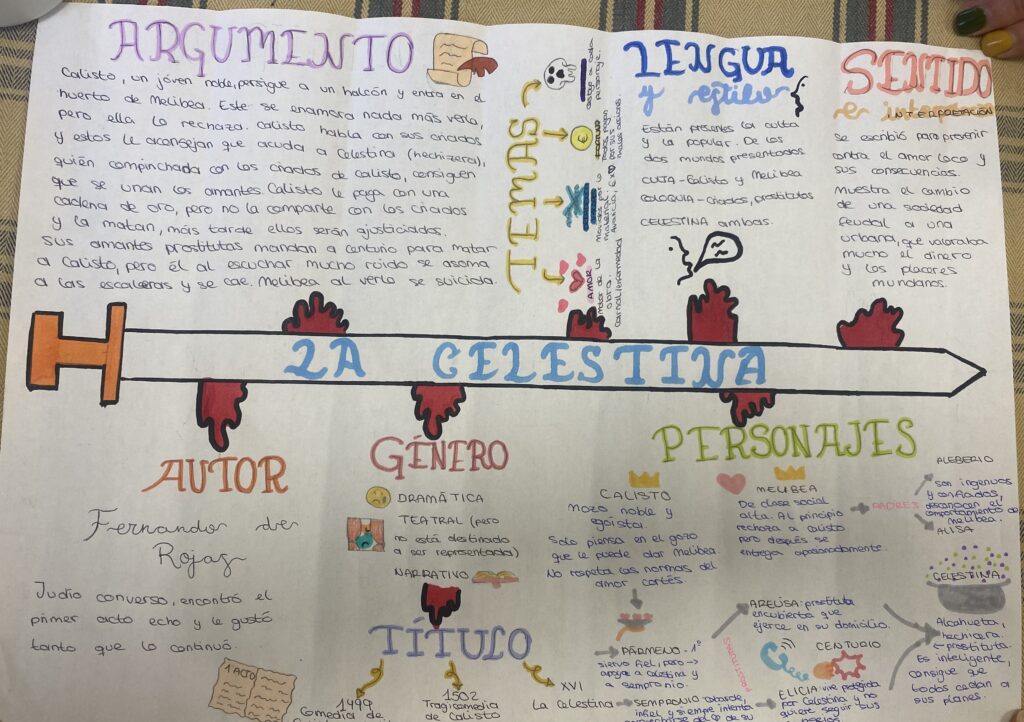 ARGUMENTO
Calisto, un jóven noble, persigue a un halcón y entra en el
huerto de Melibea. Este se enamora nada más verla,
pero ella lo rechaza. Calisto habla con sus criados
y estos le aconsejan que acuda a Celestina (hechizera),
quién compinchada con los criados de Calisto, consiguen
que se unan los amantes. Calisto le paga con una
cadena de oro, pero no la comparte con los criados
y la matan, más tarde ellos serán ajusticiados.
Sus amantes prostitutas mandan a Centurio para matar
a Calisto, pero él al escuchar mucho ruido se asoma
a las escaleras y se cae. Melibea al verlo se suicida.
TEMAS
a cada
personaje.
FORTUNA
Todos pagan
por sus
malas acciones
Movidos por lo
material.
Avaricia,
AMOR
motor de la
obra.
carnal/enfermedad
LENGUA
y estilo
Están presentes la culta
y la popular. De los
dos mundos presentados
CULTA - Calisto y Melibea
COLOQUIA - Criados, prostitutas
CELESTINA ambas.
SENTIDO
e interpretación
INTERPRETACIÓN
Se escribió para prevenir
contra el amor loco y
sus consecuencias.
muestra el cambio
de una sociedad
feudal a una
urbana, que valoraba
mucho el dinero
y los placeres
mundanos.
LA CELESTINA
AUTOR
Fernando de
Rojas
Judío converso, encontró el
primer acto echo y le gustó
tanto que lo continuó.
1 ACTO
GÉNERO
DRAMÁTICA
TEATRAL (pero
no está destinado
a ser representada)
NARRATIVO
TÍTULO
1499
Comedia de
1502
Tragicomedia
de Calisto
XVI
La Celestina
PERSONAJES
CALISTO
Mozo noble y
egoísta.
Solo piensa en el gozo
que le puede dar Melibea.
No respeta las normas del
amor cortés.
MELIBEA
De clase social
alta. Al principio
rechaza a Calisto
pero después se
entrega apasionadamente.
PADRES
ALEBERIO
son ingenuos
y confiados,
desconocen el
comportamiento de
melibea.
ALISA
PÁRMENO - 1º
siervo fiel, pero →
apoya a Celestina y
a Sempronio.
SEMPRONIO
infiel y siempre intenta
PROSTITUTAS
AREUSA: prostituta
encubierta que
ejerce en su domicilio.
CENTURIO
ELICIA: vive protegida
por Celestina y no
quiere seguir sus
CELESTINA
Alcahueta,
hechicera
prostituta.
Es inteligente,
consigue que
todos cedan a
sus planes.